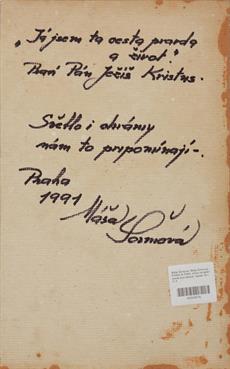 „Já jsem ta cesta pravda
a život."
Praví Pán Ježíš Kristus.
Světlo i chrámy
nám to připomínají-.
Praha
1991 Máša
Šormová